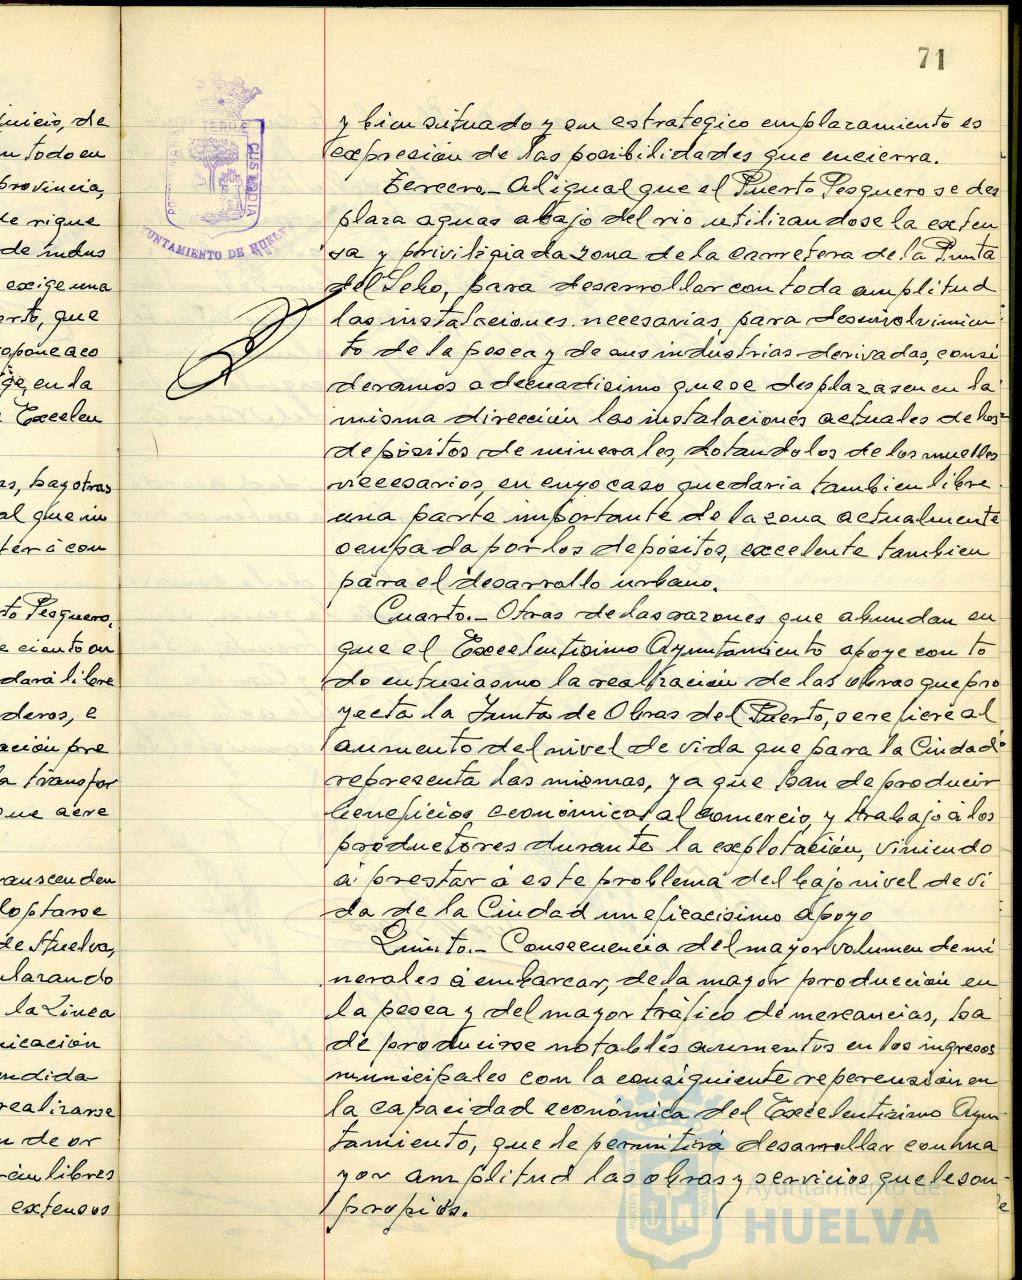 71
PORTUS MARIS ET TERRÆ CUSTODIA
AYUNTAMIENTO DE HUELVA
uicio, de
n todo en
provincia,
de rigue
de indus
exige una
erto, que
opone aco
ige, en la
Excelen
as, hay otras
al que in
terá con
to Pesquero,
e ciento on
dará libre
deros, e
ación pre
la transfor
que acre
ranscenden
doptarse
de Huelva,
ularando
la Línea
nicación
ndida
realizarse
n de or
rán libres
extensos
y bien situado y en estrategico emplazamiento es
expresión de las posibilidades que encierra.
Tercero.- Al igual que el Puerto Pesquero se des
plaza aguas abajo del rio utilizandose la exten
sa y priviligiada zona de la carretera de la Punta
del Sebo, para desarrollar con toda amplitud
las instalaciones necesarias, para desenvolvimien
to de la pesca y de sus industrias derivadas, consi
deramos adecuadisimo que se desplazasen en la
misma dirección las instalaciones actuales de los
depósitos de minerales, dotandolos de los muelles
necesarios, en cuyo caso quedaria tambien libre
una parte importante de la zona actualmente
ocupada por los depósitos, excelente tambien
para el desarrollo urbano.
Cuarto.- Otras de las razones que abundan en
que el Excelentisimo Ayuntamiento apoye con to
do entusiasmo la realización de las obras que pro
yecta la Junta de Obras del Puerto, se refiere al
aumento del nivel de vida que para la Ciudad
representa las mismas, ya que han de producir
beneficios económicos al comercio y trabajo á los
productores durante la explotación, viniendo
á prestar á este problema del bajo nivel de vi
da de la Ciudad un eficacisimo apoyo
Quinto.- Consecuencia del mayor volumen de mi
nerales á embarcar, de la mayor producción en
la pesca y del mayor tráfico de mercancias, ha
de producirse notables aumentos en los ingresos
municipales con la consiguiente repercusión en
la capacidad económica del Excelentisimo Ayun
tamiento, que le permitirá desarrollar con ma
yor amplitud las obras y servicios que le son
propios.
Ayuntamiento de
HUELVA